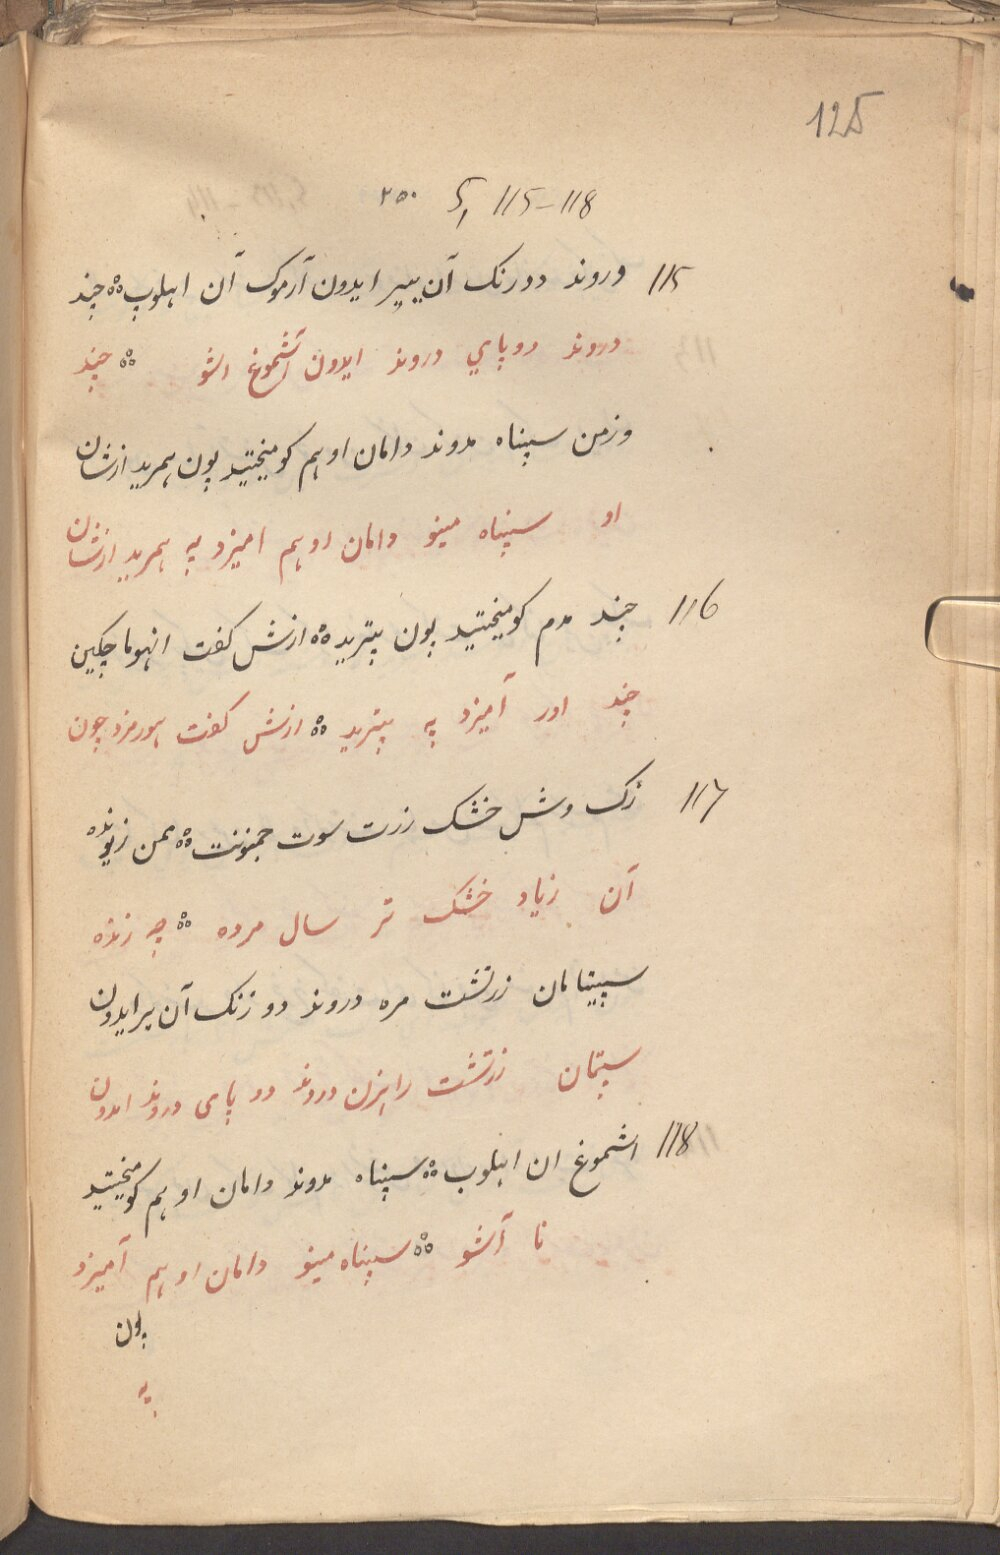 125
۲۵۰ 5, 115-118
115 وروند دورنک آن ایدون آرموک آن اهلوپ ؞ چند
دروند دوپای دروند ایدون آشموغ اشو ؞ چند
وزمن سپناه مروند دامان اوهم کومیختید پون همرید ازشان
او سپناه مینو دامان اوهم امیزد په همرید ازشان
116 چند مدم کومیختید پون پیترید ؞ ازش کفت انهوما چکین
چند اور آمیزد په پیترید ؞ ازش کفت هورمزد چون
117 زک وش خشک زرت سوت جمنونت ؞ من زیونده
آن زیاد خشک تر سال مرده ؞ چه زنده
سپیتامان زرتشت مره دروند دو زنک آن ایدون
سپتمان زرتشت دروند دو پای دروند ایدون
118 اشموغ ان اهلوب ؞ سپناه مروند دامان اوهم کومیختید
نا آشو ؞ سپناه مینو دامان اوهم آمیزد
پون
په